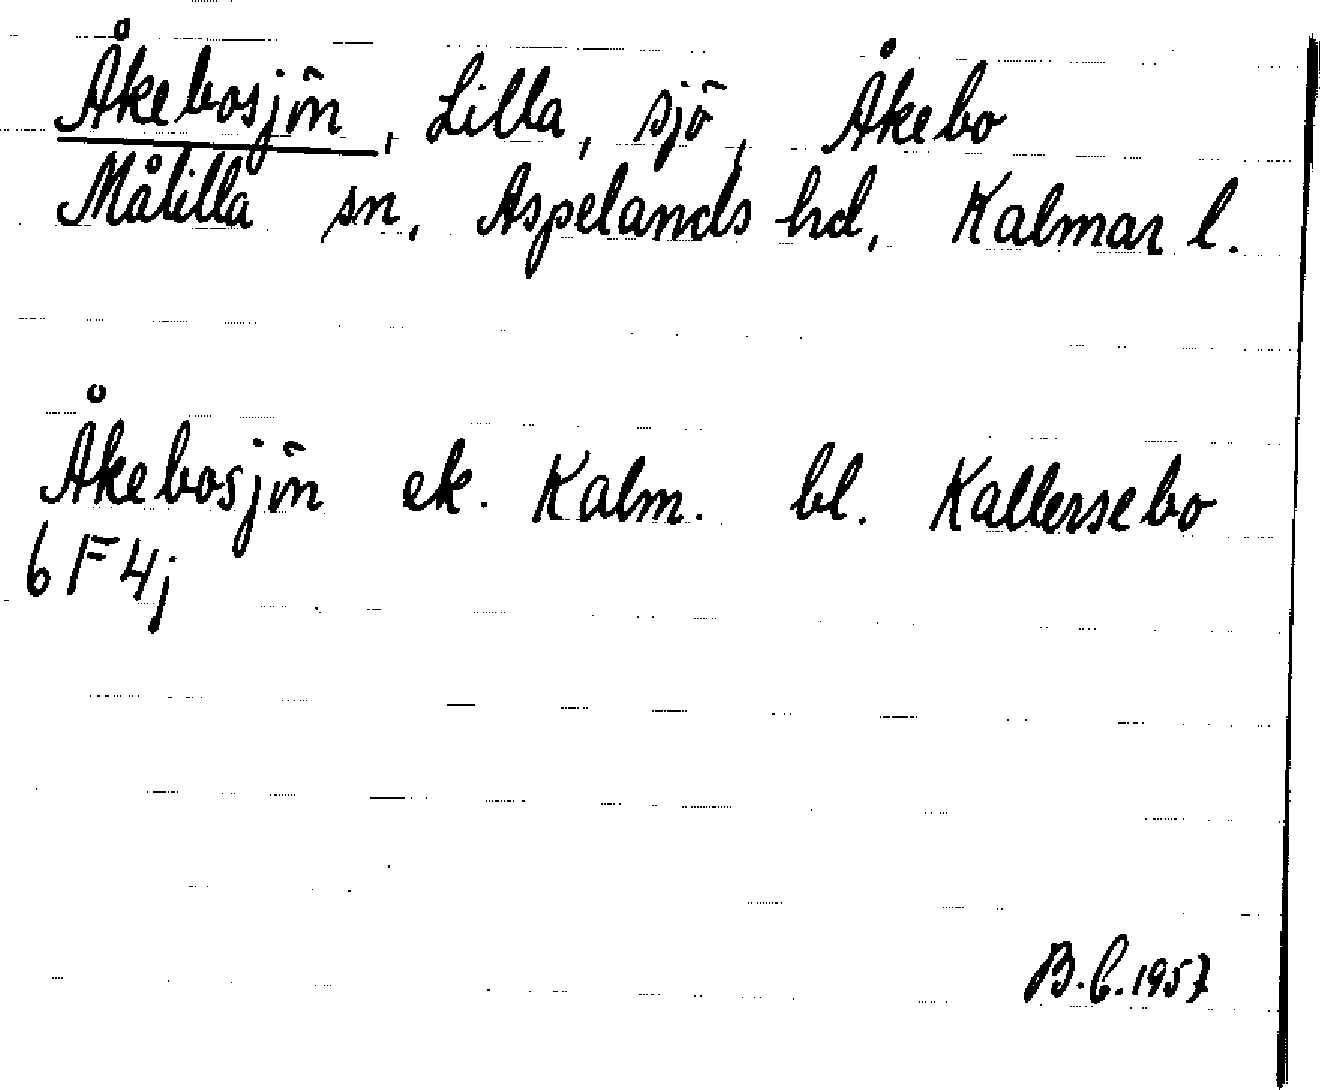 Åkebosjön, Lilla, sjö, Åkebo
Målilla sn, Aspelands hd, Kalmar l.
Åkebosjön ek. Kalm. bl. Kallersebo
6F4j
B.C. 1957